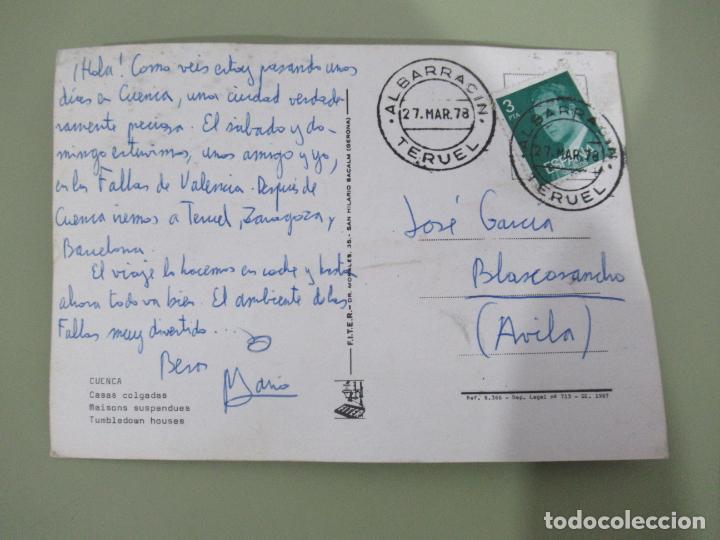 ¡Hola! Como veis estoy pasando unos
días en Cuenca, una ciudad verdade
ramente preciosa. El sábado y do-
mingo estuvimos, unos amigo y yo,
en las Fallas de Valencia. Después de
Cuenca iremos a Teruel, Zaragoza y
Barcelona.
El viaje lo hacemos en coche y hasta
ahora todo va bien. El ambiente de las
Fallas muy divertido...
Besos
Mario
CUENCA
Casas colgadas
Maisons suspendues
Tumbledown houses
F.I.T.E.R. - DR. MORALES, 35. - SAN HILARIO SACALM (GERONA)
ALBARRACIN
27. MAR. 78
TERUEL
3
PTA
ESPAÑA
ALBARRACIN
27. MAR. 78
TERUEL
José García
Blascosancho
(Avila)
Ref. 8.366 - Dep. Legal nº 713 - GE. 1967
todocoleccion
todocoleccion.net